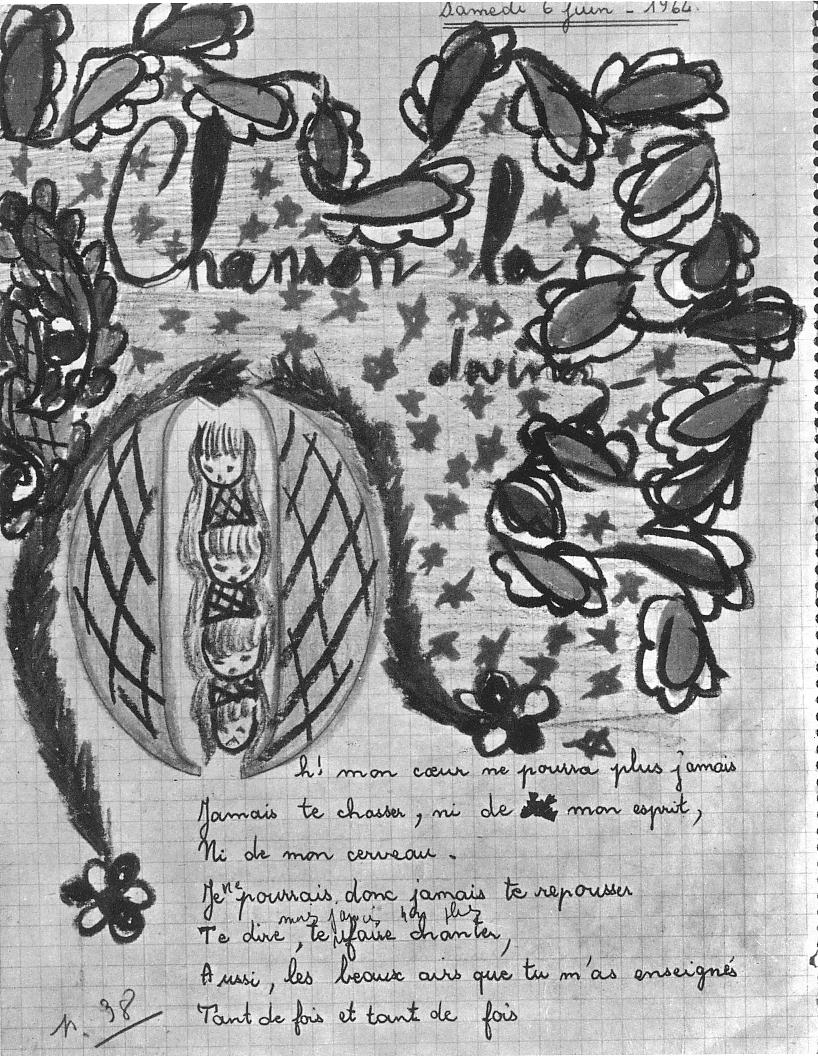 Samedi 6 Juin - 1964.
Chanson la
devine
h! mon cœur ne pourra plus jamais
Jamais te chasser, ni de mon esprit,
Ni de mon cerveau.
Je ne pourrais donc jamais te repousser
mais jamais non plus
Te dire, te faire chanter,
Aussi, les beaux airs que tu m'as enseignés
Tant de fois et tant de fois
p. 38